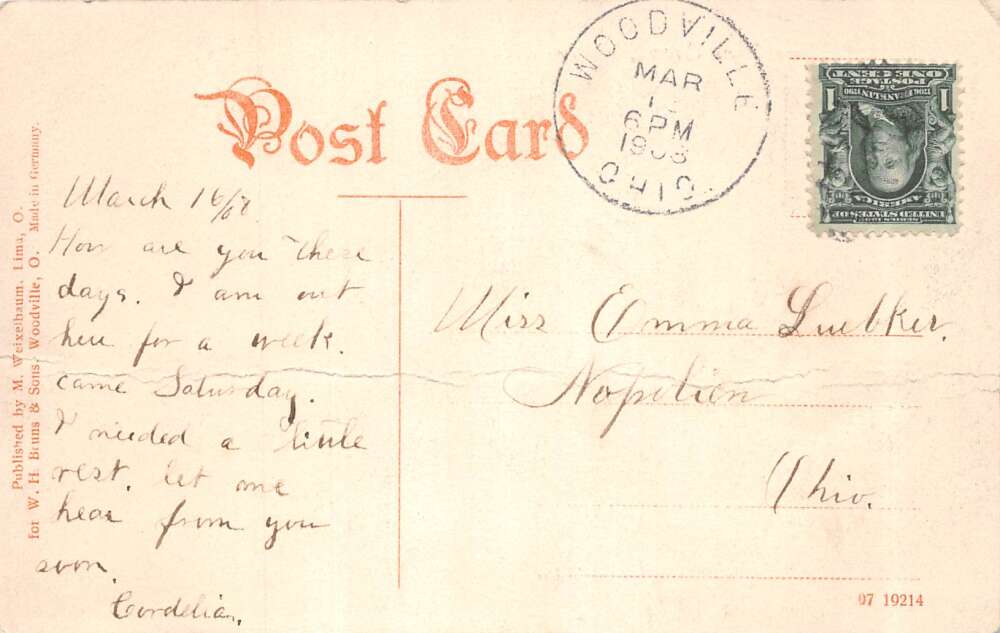 Post Card
WOODVILLE
MAR
6 PM
1908
OHIO.
1 POSTAGE 1
ONE CENT
1706 FRANKLIN 1790
SERIES 1902
UNITED STATES OF
AMERICA
March 16/08.
How are you these
days. I am out
here for a week.
came Saturday.
I needed a little
rest. let me
hear from you
soon.
Cordelia.
Miss Emma Luebker.
Nopolien
Ohio.
Published by M. Weixelbaum. Lima, O.
for W. H Bruns & Sons. Woodville, O. Made in Germany.
07 19214